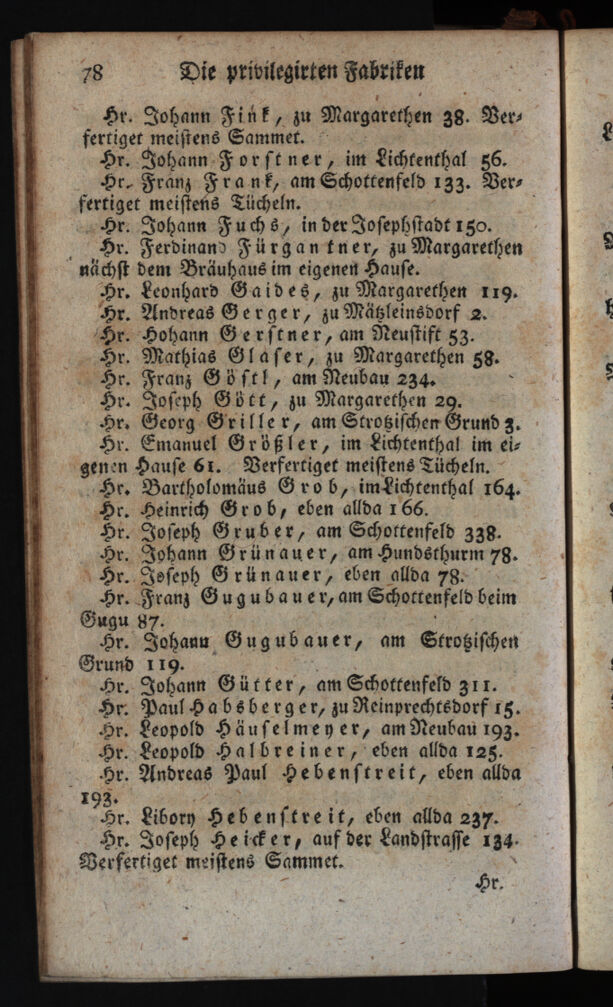 78 Die privilegirten Fabriken
Hr. Johann Fink, zu Margarethen 38. Ver-
fertiget meistens Sammet.
Hr. Johann Forstner, im Lichtenthal 56.
Hr. Franz Frank, am Schottenfeld 133. Ver-
fertiget meistens Tücheln.
Hr. Johann Fuchs, in der Josephstadt 150.
Hr. Ferdinand Fürgantner, zu Margarethen
nächst dem Bräuhaus im eigenen Hause.
Hr. Leonhard Gaides, zu Margarethen 119.
Hr. Andreas Gerger, zu Mätzleinsdorf 2.
Hr. Hohann Gerstner, am Neustift 53.
Hr. Mathias Glaser, zu Margarethen 58.
Hr. Franz Göstl, am Neubau 234.
Hr. Joseph Gött, zu Margarethen 29.
Hr. Georg Griller, am Strotzischen Grund 3.
Hr. Emanuel Größler, im Lichtenthal im ei-
genen Hause 61. Verfertiget meistens Tücheln.
Hr. Bartholomäus Grob, im Lichtenthal 164.
Hr. Heinrich Grob, eben allda 166.
Hr. Joseph Gruber, am Schottenfeld 338.
Hr. Johann Grünauer, am Hundsthurm 78.
Hr. Joseph Grünauer, eben allda 78.
Hr. Franz Gugubauer, am Schottenfeld beim
Gugu 87.
Hr. Johann Gugubauer, am Strotzischen
Grund 119.
Hr. Johann Gütter, am Schottenfeld 311.
Hr. Paul Habsberger, zu Reinprechtsdorf 15.
Hr. Leopold Häuselmeyer, am Neubau 193.
Hr. Leopold Halbreiner, eben allda 125.
Hr. Andreas Paul Hebenstreit, eben allda
193.
Hr. Libory Hebenstreit, eben allda 237.
Hr. Joseph Heicker, auf der Landstrasse 134.
Verfertiget meistens Sammet.
Hr.